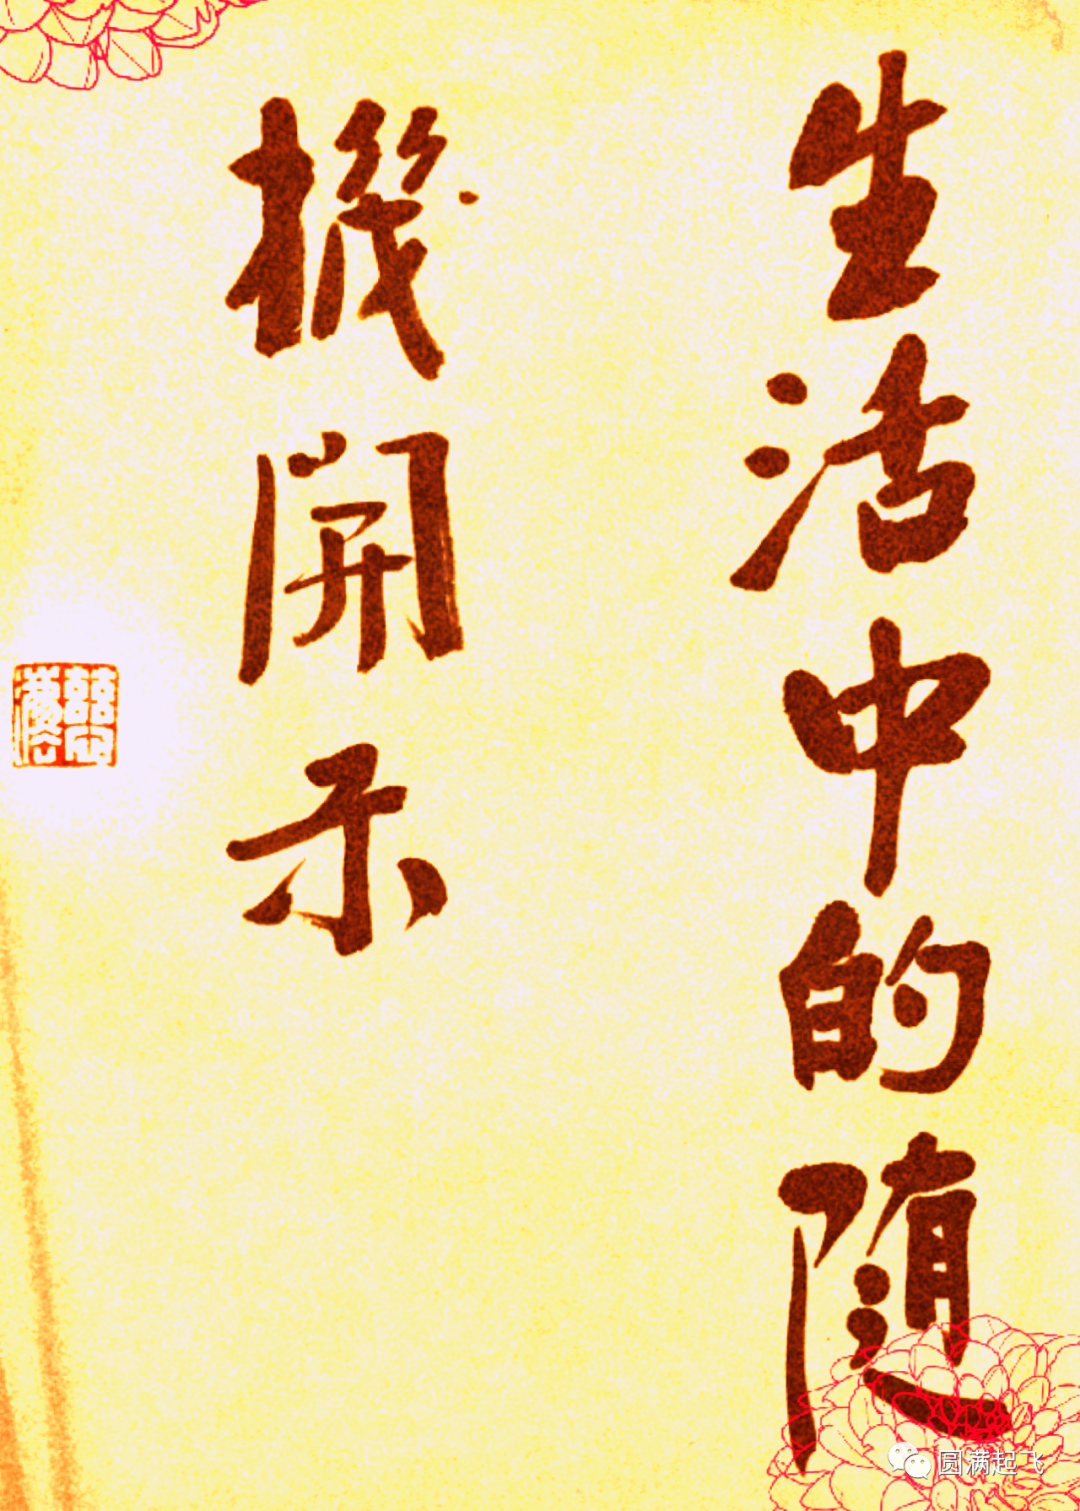 生活中的随
機開示
圆满起飞